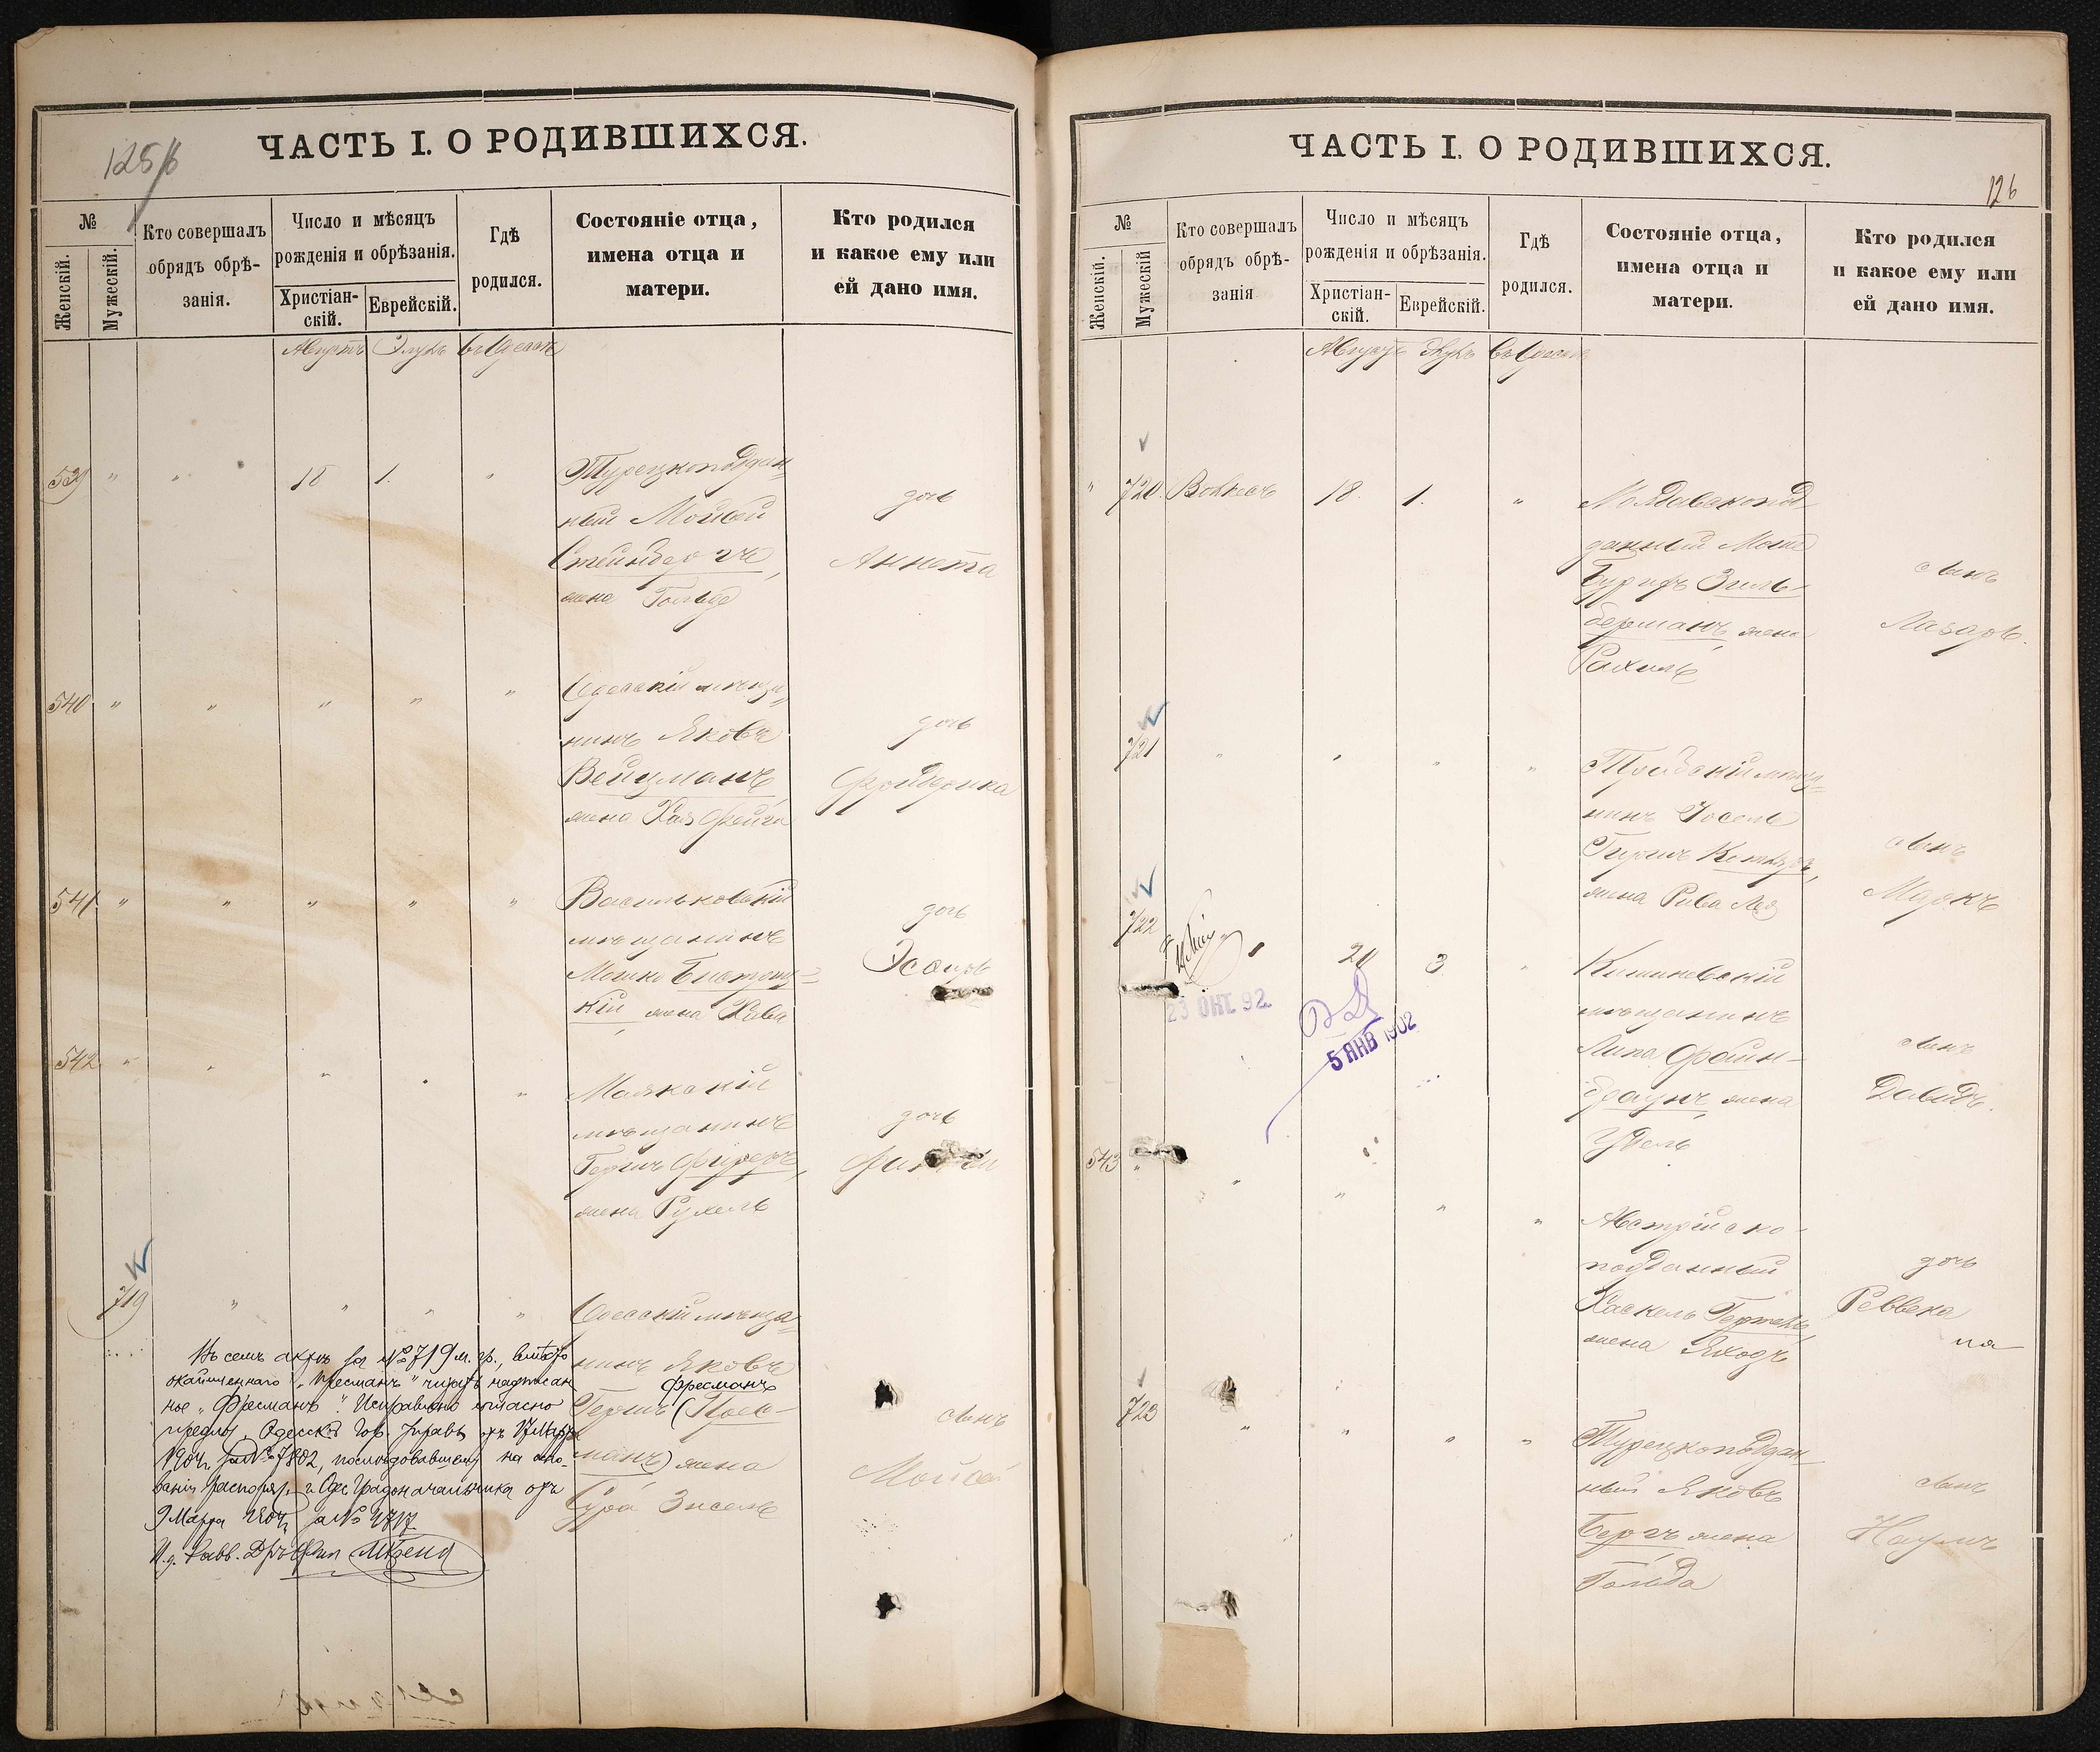 125
ЧАСТЬ I. О РОДИВШИХСЯ.
№
Женскій.
Мужескій.
Кто совершалъ
обрядъ обрѣ-
занія.
Число и мѣсяцъ
рожденія и обрѣзанія.
Христіан-
скій.
Еврейскій.
Гдѣ
родился.
Состояніе отца,
имена отца и
матери.
Кто родился
и какое ему или
ей дано имя.
Августъ Элулъ въ Одессѣ
539 " " 18 1. "
Турецкоподдан-
ный Мойсей
Стейнбергъ,
жена Гольда
дочь
Аннета
540 " " " " "
Одесскій мѣща-
нинъ Яковъ
Вейцманъ
жена Хая Фейга
дочь
Фрейдерика
541. " " " " "
Васильковскій
мѣщанинъ
Мошко
кій жена Хава
дочь
Эсѳирь
542 " " " " "
Маякскій
мѣщанинъ
Гершъ
жена Рухель
дочь
719 " " " "
Одесскій мѣща-
нинъ Яковъ
Фресманъ
Гершъ (Прес-
манъ) жена
Сура Зисель
сынъ
Мойсей
Въ семъ актѣ за № 719 м. гр., вмѣсто
окаймленнаго "Пресманъ" читать надписан
ное "Фресманъ". Исправлено согласно
предлож. Одесской Гор. Управы отъ 17 Марта
1904 г. за № 7802, послѣдовавшему на осно-
ваніи распоряж. г. Одес. Градоначальника отъ
9 Марта 1904 г. за №
И. д. Равв. Д-ръ Фил.
ЧАСТЬ I. О РОДИВШИХСЯ.
126
№
Женскій.
Мужескій
Кто совершалъ
обрядъ обрѣ-
занія
Число и мѣсяцъ
рожденія и обрѣзанія.
Христіан-
скій.
Еврейскій.
Гдѣ
родился.
Состояніе отца,
имена отца и
матери.
Кто родился
и какое ему или
ей дано имя.
Августъ Элулъ въ Одессѣ
" 720. 18. 1. "
Молдавскопод-
данный
Зиль-
берманъ, жена
Рахиль
сынъ
Лазарь.
721 " " " "
мѣща-
нинъ Іосель
Гершъ
жена Рива Лея
сынъ
Маркъ
722 20 3 "
23 ОКТ. 92.
5 ЯНВ 1902
Кишиневскій
мѣщанинъ
Липа Фейн-
браунъ, жена
Удель
сынъ
Давидъ.
543 " " " " "
Австрійско-
подданный
Хаскель
жена
дочь
Реввека
723 " " " "
Турецкоподдан-
ный Яковъ
Бергъ жена
Гольда
сынъ
Наумъ